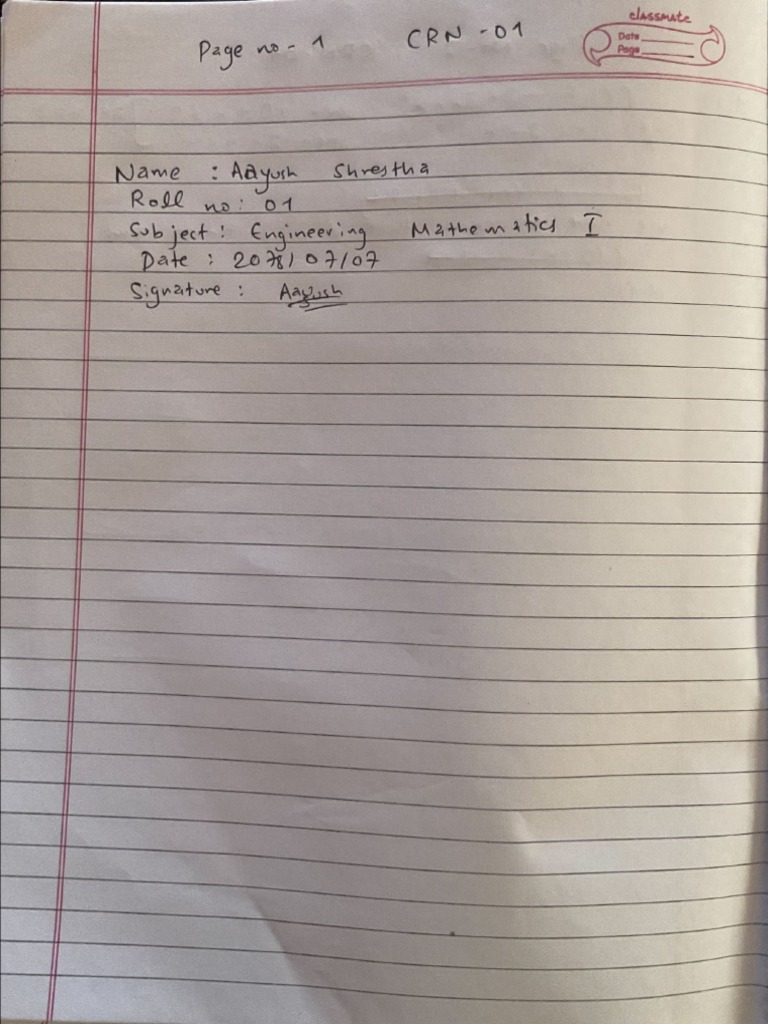 Page no - 1 CRN - 01
classmate
Date
Page
Name : Aayush Shrestha
Roll no: 01
Subject: Engineering Mathematics I
Date : 2078/07/07
Signature : Aayush